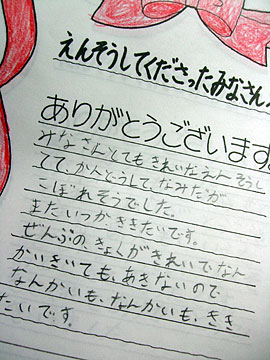 えんそうしてくださったみなさん
ありがとうございます。
みなさんとてもきれいなえんそうし
てて、かんどうして、なみだが
こぼれそうでした。
またいつか、ききたいです。
ぜんぶのきょくがきれいでなん
かいきいても、あきないので
なんかいも、なんかいも、きき
たいです。